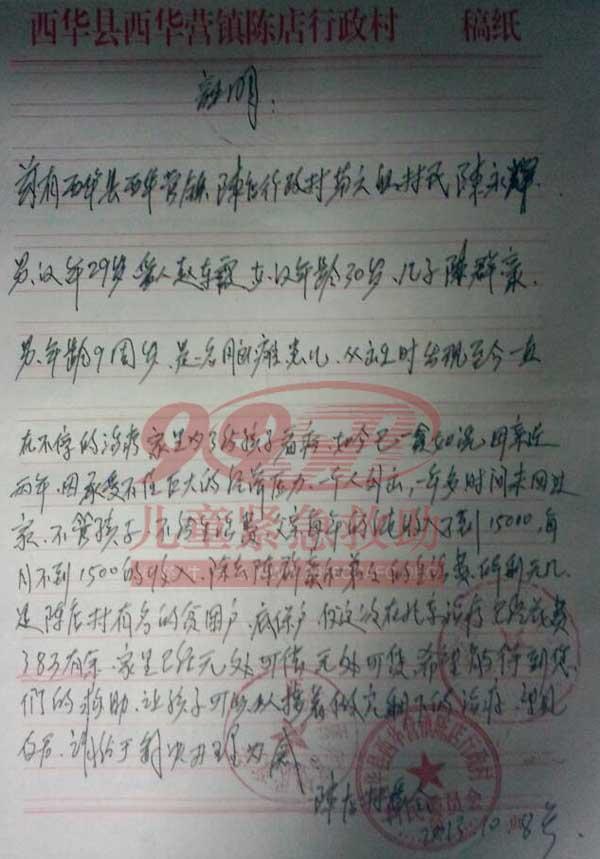 西华县西华营镇陈店行政村 稿纸
证明：
兹有西华县西华营镇陈店行政村第六组村民陈永辉.
男,汉 年29岁 爱人赵东霞 女,汉 年龄30岁、儿子陈群豪.
男.年龄9周岁.是一名脑瘫患儿.从出生时发现至今一直
在不停的治疗 家里为了给孩子看病.如今已一贫如洗,母亲近
两年.因承受不住巨大的经济压力.一个人外出,一年多时间未回过
家.不管孩子.不给生活费.父亲每年的纯收入不到15000,每
月不到1500的收入.除去陈群豪和弟弟的生活费.所剩无几.
是陈店村有名的贫困户.底保户.仅这次在北京治疗已经花费
3万有余.家里已经无处可借.无处可贷.希望能得到您
们的救助.让孩子可以接着做完剩下的治疗.望见
请给于解决办理为感
陈店村委会
2013.10.08号
西华县西华营镇陈店行政村
村民委员会
9958
儿童紧急救助